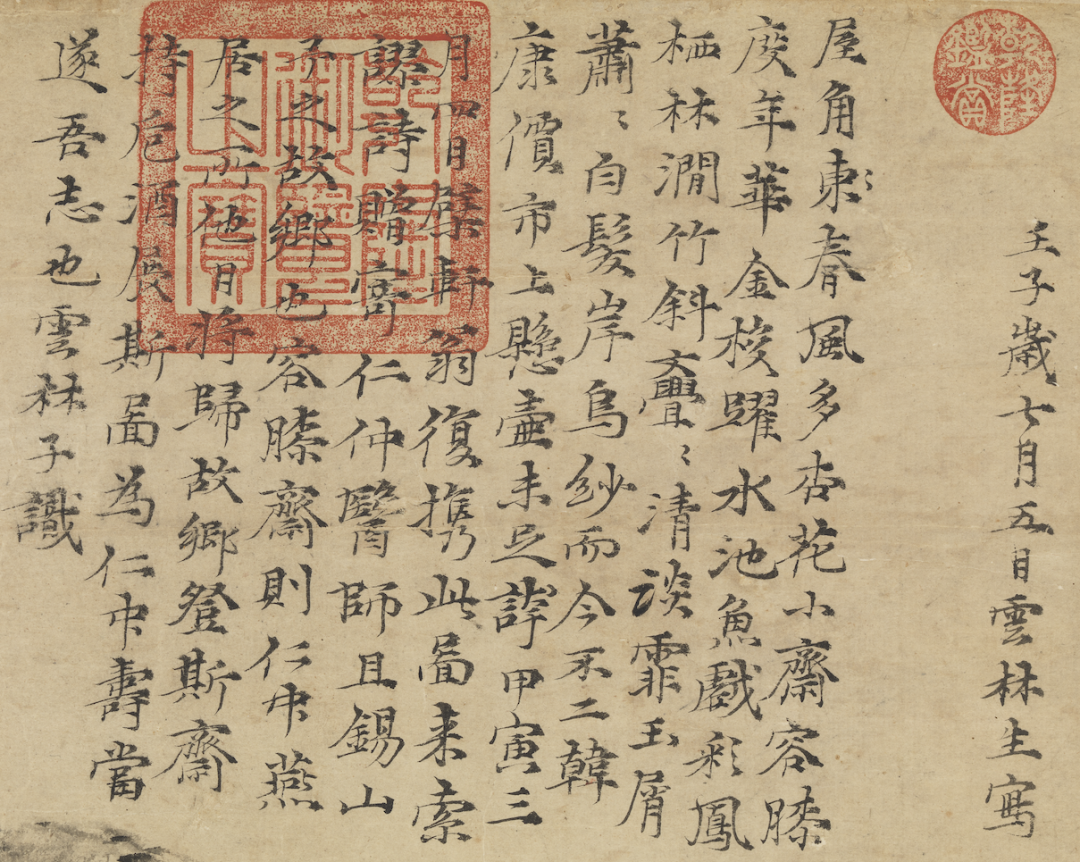 壬子歲七月五日雲林生寫
屋角東〻春風多杏花小齋容膝
度年華金梭躍水池魚戲彩鳳
栖林澗竹斜亹〻清談霏玉屑
蕭〻白髮岸烏紗而今不二韓
康價市上懸壺未足誇甲寅三
月四日檗軒翁復携此啚来索
謬詩贈寄仁仲醫師且錫山
予之故鄉也容膝齋則仁中燕
居之所他日將歸故鄉登斯齋
持卮酒展斯啚為仁中壽當
遂吾志也雲林子識
乾隆鑑賞